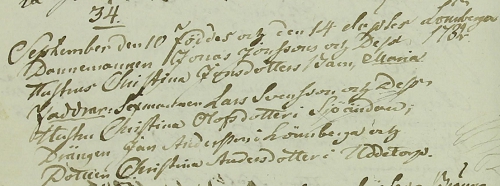 34.
September den 10 Föddes och den 14 döptes Lönneberga
Dannemannen Jonas Jönssons och Dess 1784.
Hustrus Christina Jonsdotters Barn, Maria
Faddrar: Sexmannen Lars Svensson och Dess
Hustru Christina Olofsdotter i Sjöändan;
Drängen Jan Andersson i Lönneberga och
Pottien Christina Andersdotter i Uddetorp.